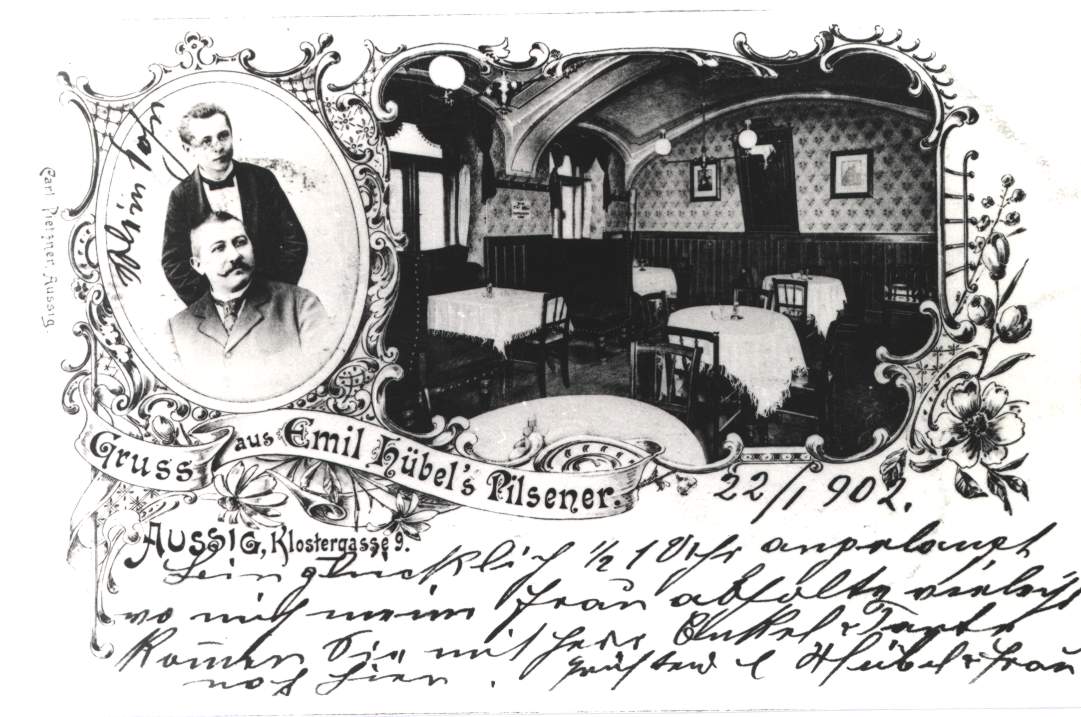 Carl Pietzner, Aussig.
Gruss aus Emil Hübel's Pilsener.
AUSSIG, Klostergasse 9.
22/1 902.
Bin glücklich ½ 1 Uhr angelangt
wo mich meine Frau abholte vieleicht
Komen Sie mit Herr Onkel & Tante
noch hier. E Hübel & Frau